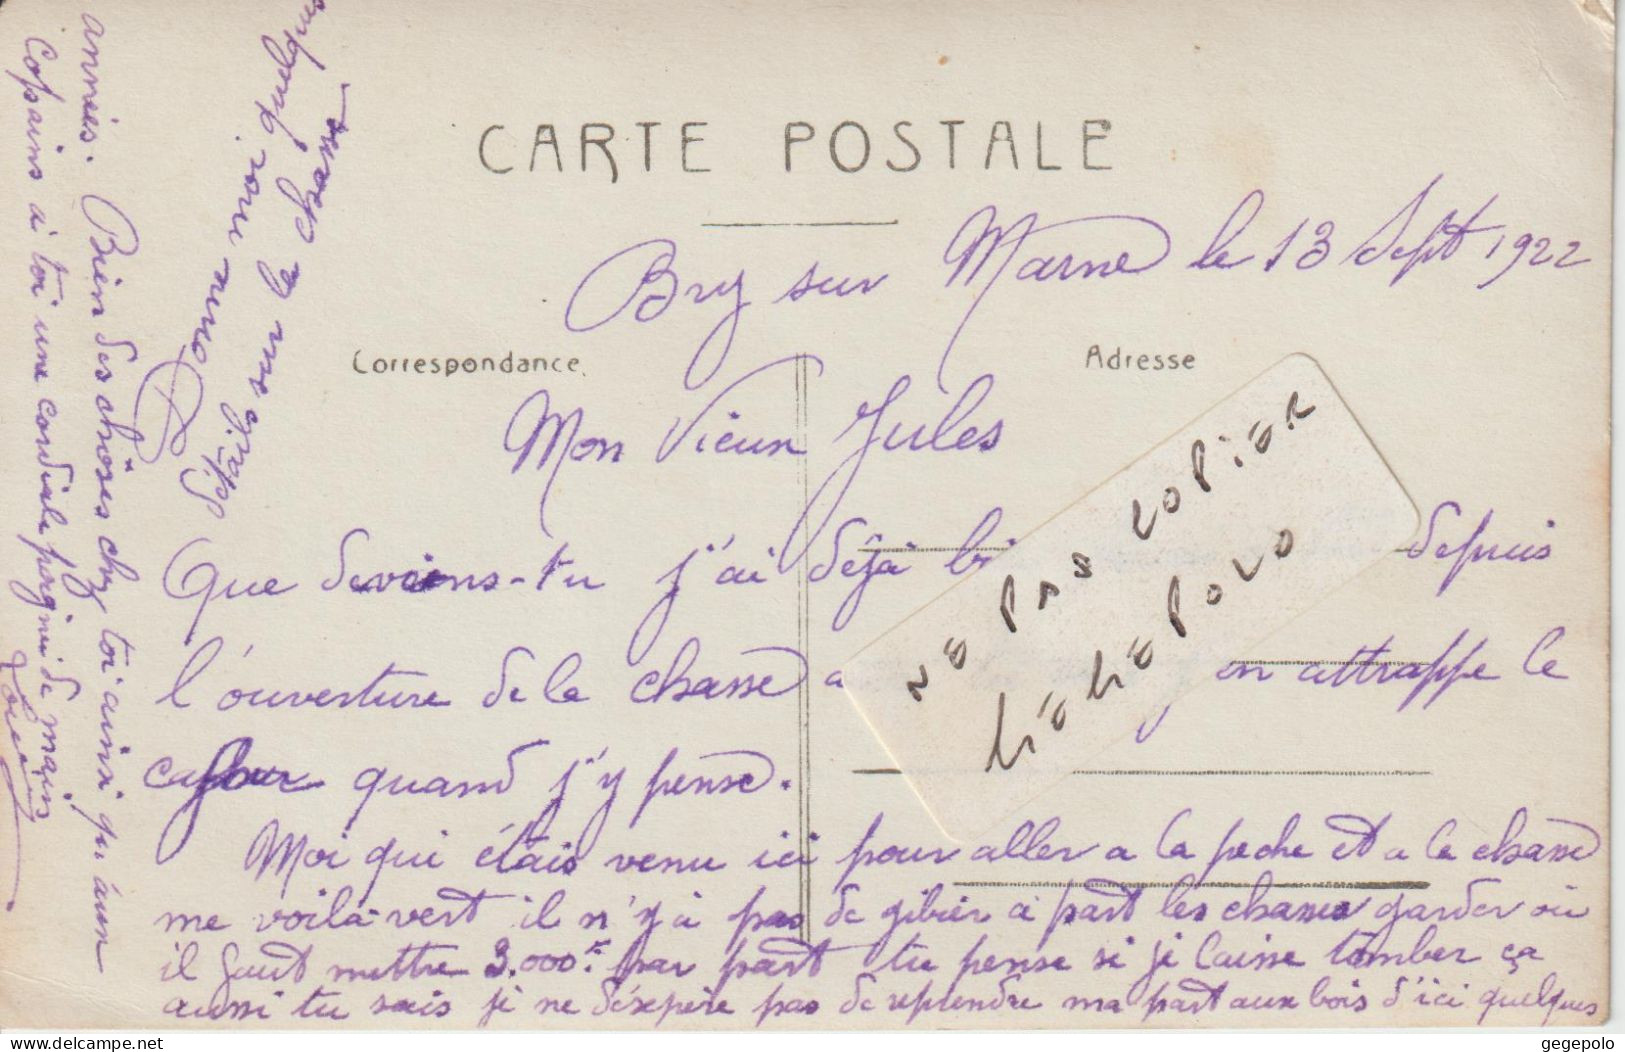 CARTE POSTALE
Bry sur Marne le 13 Sept 1922
Correspondance
Adresse
Mon Vieux Jules
Que deviens-tu j'ai déjà bi depuis
l'ouverture de la chasse a on attrappe le
cafour quand j'y pense.
Moi qui étais venu ici pour aller a la peche et a la chasse
me voilà vert il n'y a pas de gibier à part les chasses garder où
il faut mettre 3.000 fr par part tu pense si je laisse tomber ça
aussi tu sais je ne désepère pas de reprendre ma part aux bois d'ici quelques
années. Bien des choses chez toi ainsi qu'aux
Copains à toi une cordiale poignée de mains
Pour moi quelques
détails sur la chasse
Ne pas copier
gégépolo
delcampe.net
gegepolo